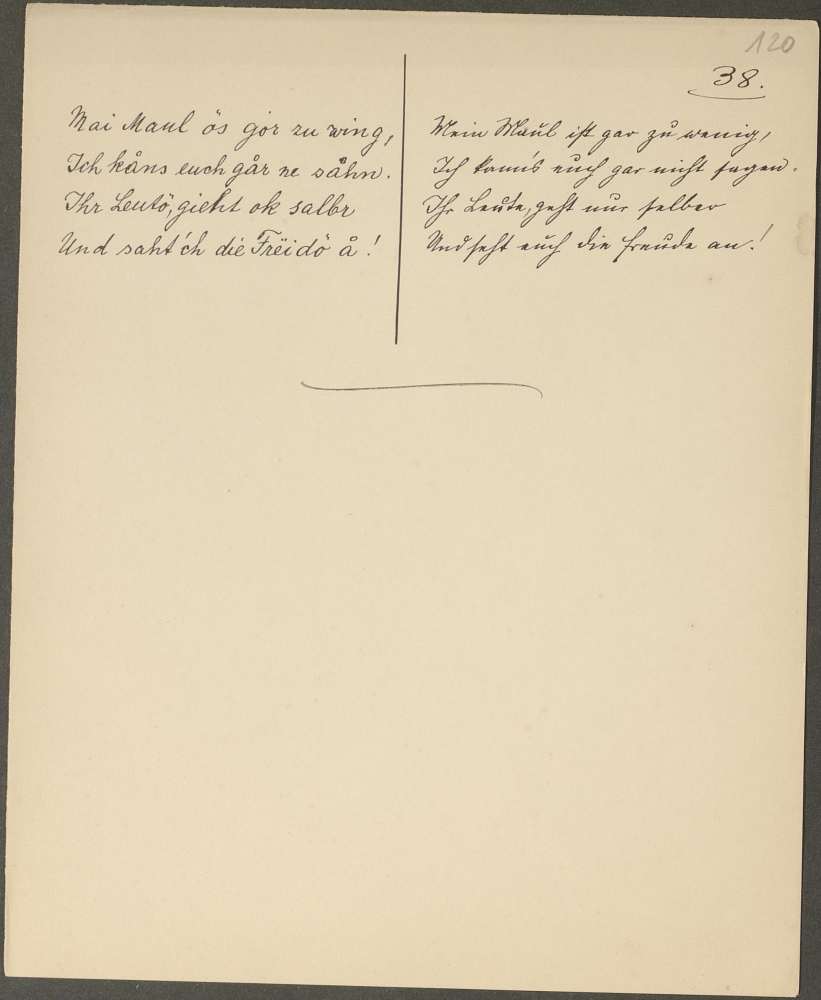 120
38.
Mai Maul ös gor zu wing,
Ich kåns euch går ne såhn.
Ihr Leutö, gieht ok salbr
Und saht'ch die Frëidö å!
Mein Maul ist gar zu wenig,
Ich kann's euch gar nicht sagen.
Ihr Leute, geht nur selber
Und seht euch die Freude an!